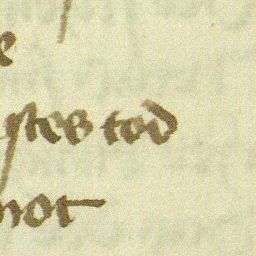 e
stes tod
not